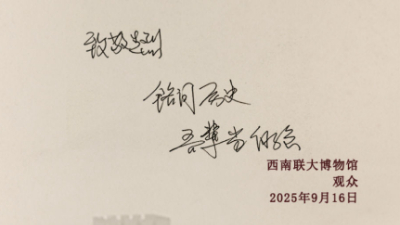 致敬先烈
铭记历史
吾辈当自强
西南联大博物馆
观众
2025年9月16日